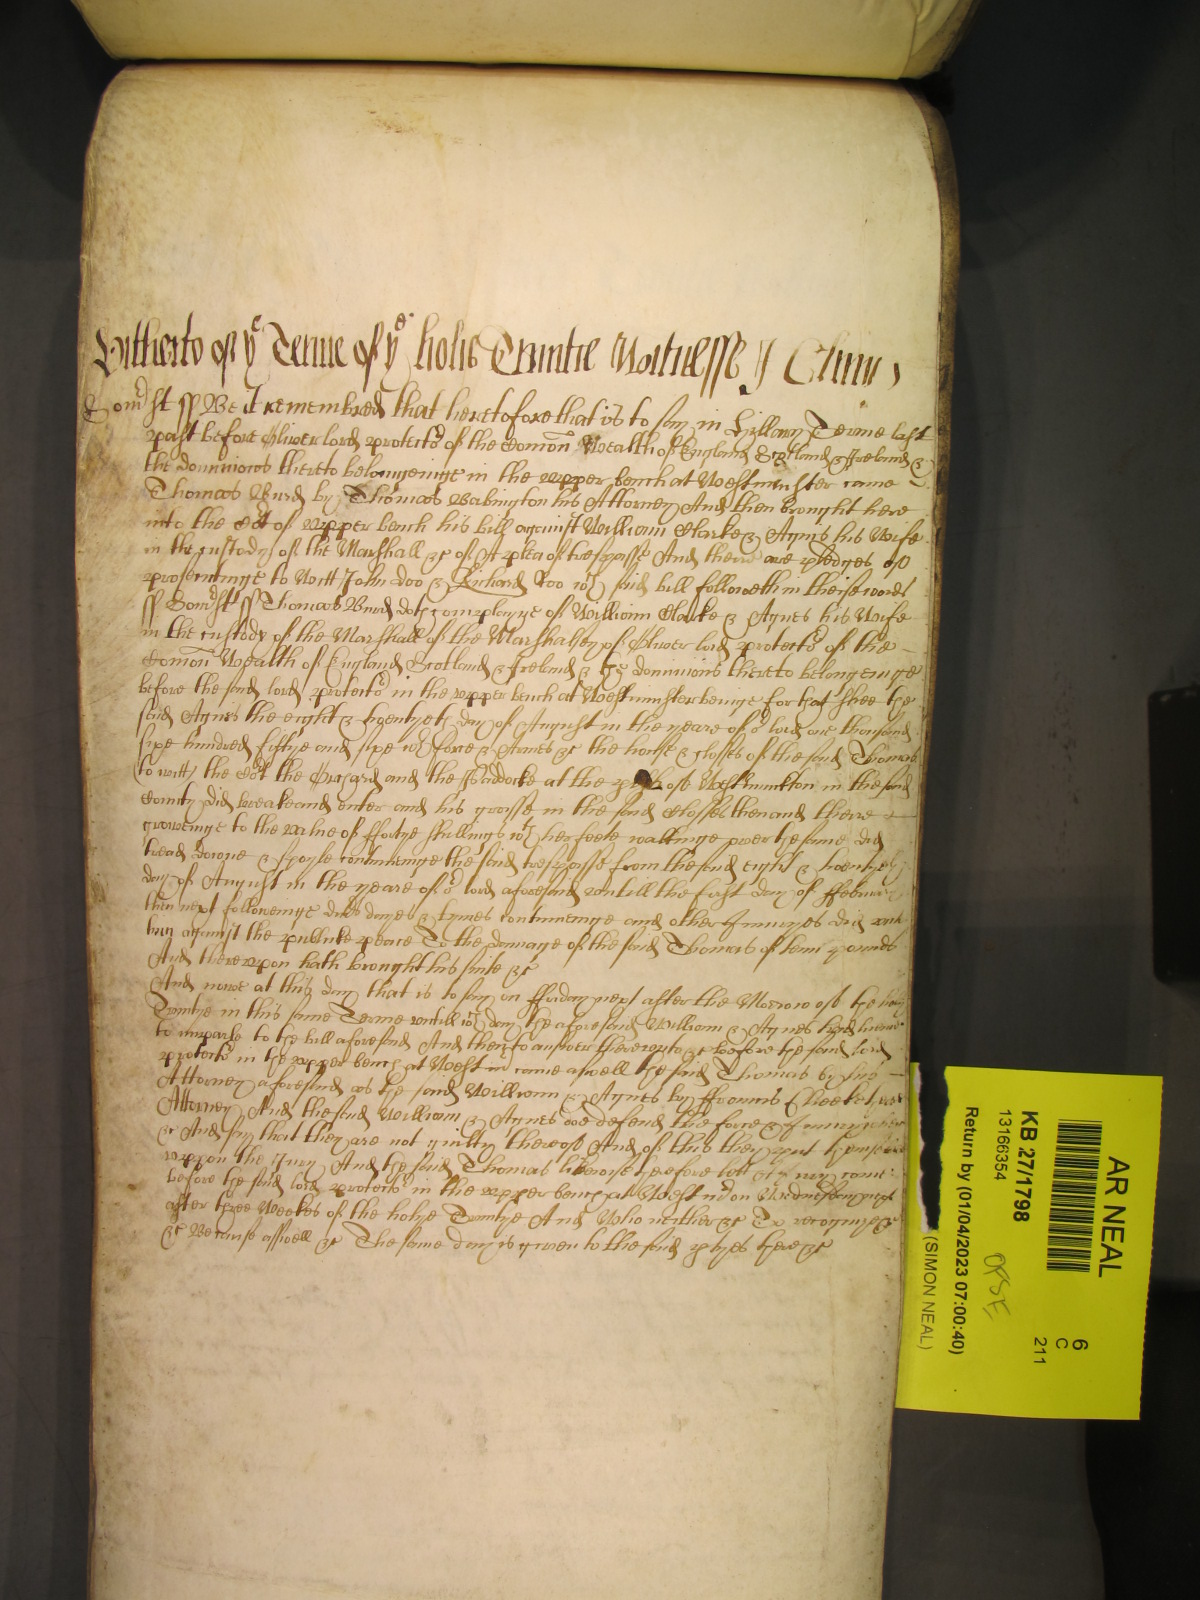 Hitherto of ye Terme of ye holie Trinitie Witnesse J Clerk
Somst ss Be it remembred that heretofore that is to say in Hillary Terme last
past before Oliver lord protector of the Comon Wealth of England Scotland & Ireland &
the dominions thereto belongeinge in the upper bench at Westminster came
Thomas Burd by Thomas Babington his Attorney And then brought here
into the Cot of upper bench his bill against William Clarke & Agnis his Wife
in the custody of the Marshall &c of A plea of trespasse And there are pledges of
prosecutinge to Witt John Doo & Richard Roo wch said bill followeth in theise words
ss Somst ss Thomas Burd doth complayne of William Clarke & Agnes his Wife
in the custody of the Marshall of the Marshalsey of Oliver lord protector of the
Comon Wealth of England Scotland & Ireland & the dominions thereto belongeinge
before the said lord protector in the upper bench at Westminster beinge for that shee the
said Agnis the eight & twentyeth day of August in the yeare of or lord one thousand
sixe hundred fiftye and sixe wth force & Armes &c the house & closses of the said Thomas
to witt the the Orchard and the Paddocke at the of Westmunkton in the said
County did breake and enter and his grasse in the said Closses then and there
groweinge to the value of ffortye shillings wth her feete walkinge over the same did
tread downe & spoyle continueinge the said trespasse from the said eight & twentyeth
day of August in the yeare of or lord aforesaid untill the first day of ffebruary
then next followeinge divs dayes & tymes continueinge and other Injuryes did unto
him against the publike peace To the damage of the said Thomas of tenn pounds
And thereupon hath brought his suite &c
And nowe at this day that is to say on ffriday next after the Morrow of the holy
Trinitye in this same Terme untill wch day the aforesaid William & Agnes had licence
to imparle to the bill aforesaid And then to answer thereunto &c before the said lord
protector in the upper bench at Westm came aswell the said Thomas by his
Attorney aforesaid as the said William & Agnes by ffrancis their
Attorney And the said William & Agnes doe defend the force & Injury when
&c And say that they are not guilty thereof And of this they put themselves
uppon the Jury And the said Thomas likewise therefore lett a Jury come
before the said lord protector in the upper bench at Westm on Wednesday next
after three Weekes of the holye Trinitye And Who neither &c To recognize
&c Because aswell &c The same day is given to the said ptyes there &c
AR NEAL
6
C
211
KB 27/1798
13166354
Return by (01/04/2023 07:00:40)
(SIMON NEAL)